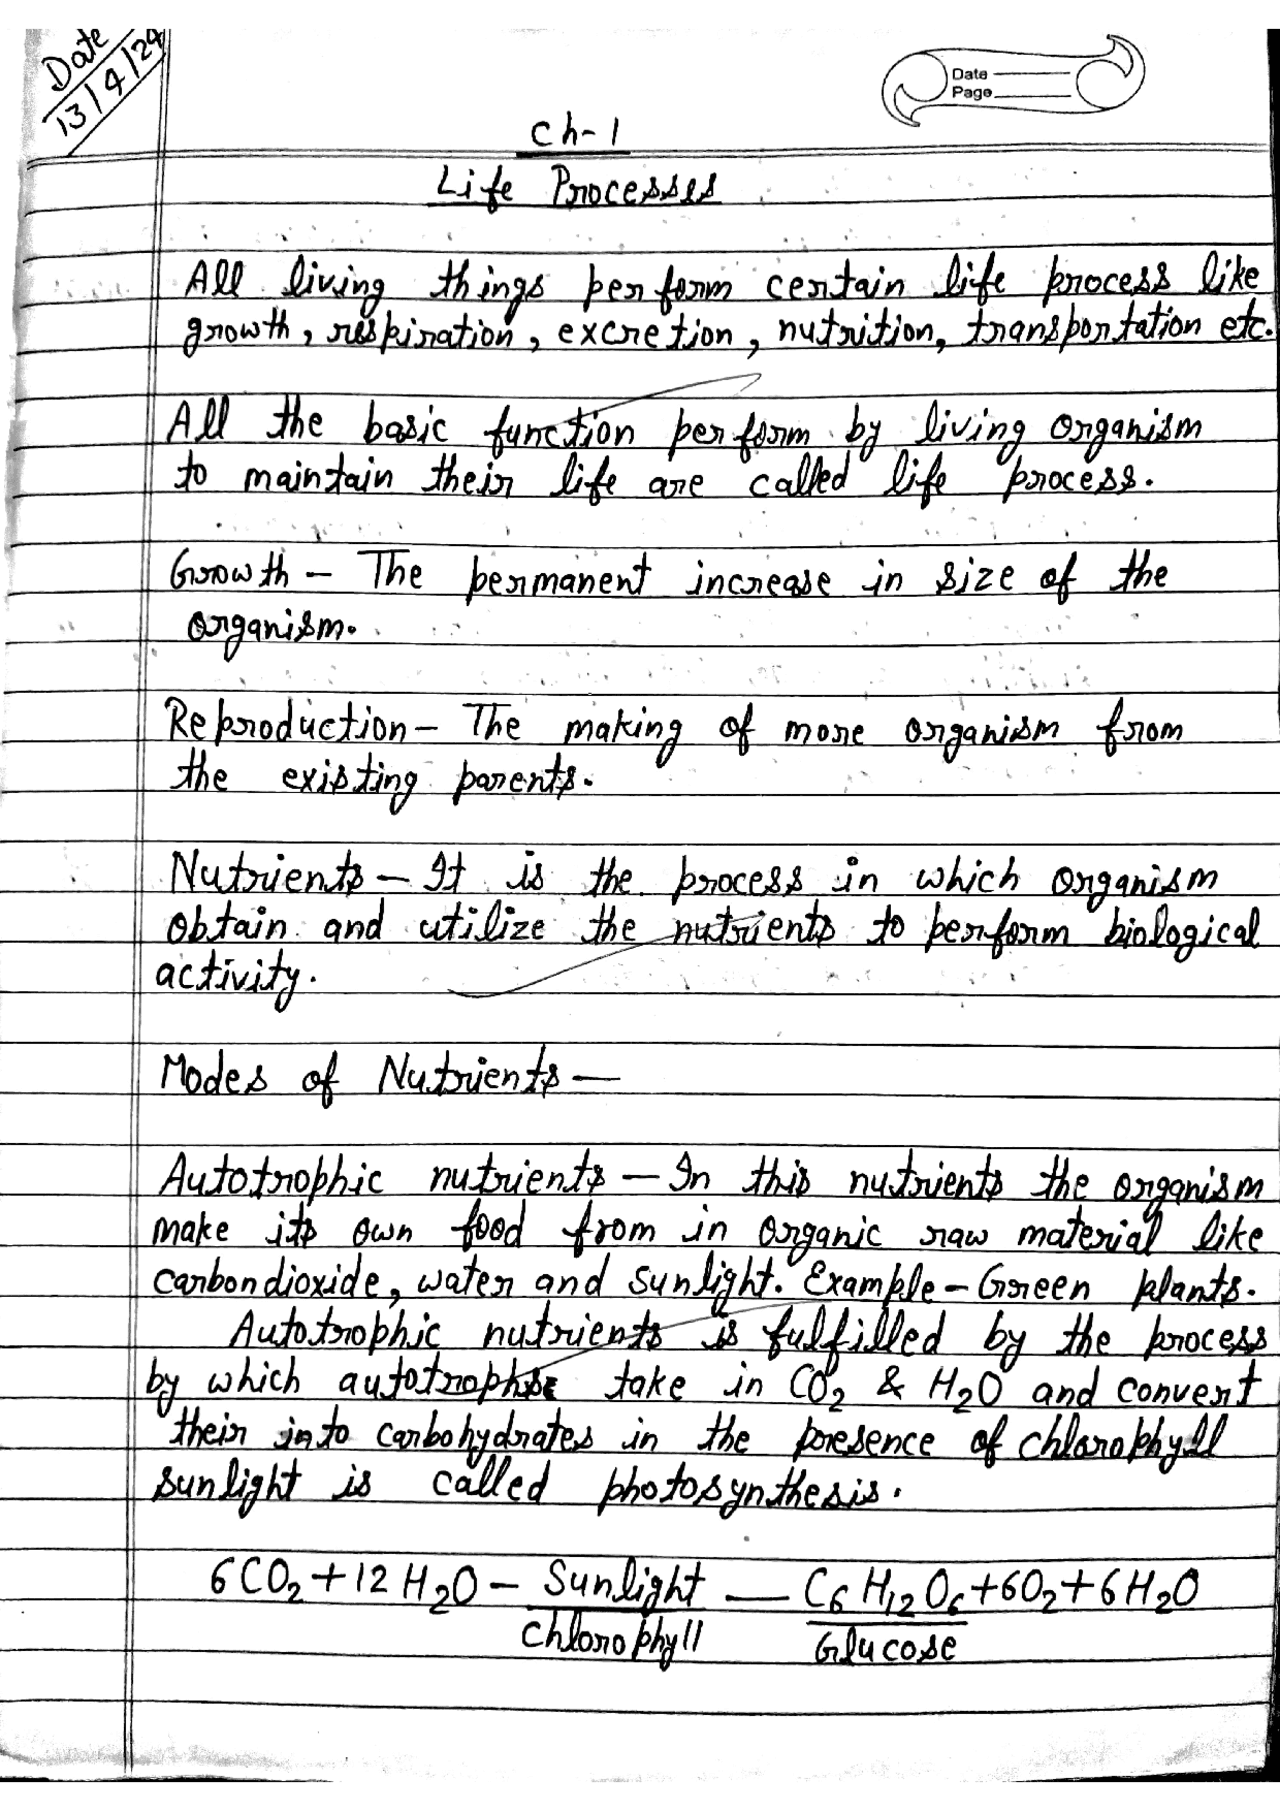 Date
13/4/24
Date
Page
Ch-1
Life Processes
All living things perform certain life process like
growth, respiration, excretion, nutrition, transportation etc.
All the basic function perform by living organism
to maintain their life are called life process.
Growth - The permanent increase in size of the
organism.
Reproduction - The making of more organism from
the existing parents.
Nutrients - It is the process in which organism
obtain and utilize the nutrients to perform biological
activity.
Modes of Nutrients -
Autotrophic nutrients - In this nutrients the organism
make its own food from in organic raw material like
carbondioxide, water and sunlight. Example - Green plants.
Autotrophic nutrients is fulfilled by the process
by which autotrophic take in CO₂ & H₂O and convert
their into carbohydrates in the presence of chlorophyll
sunlight is called photosynthesis.
6CO₂ + 12H₂O - Sunlight — C₆H₁₂O₆ + 6O₂ + 6H₂O
Chlorophyll Glucose